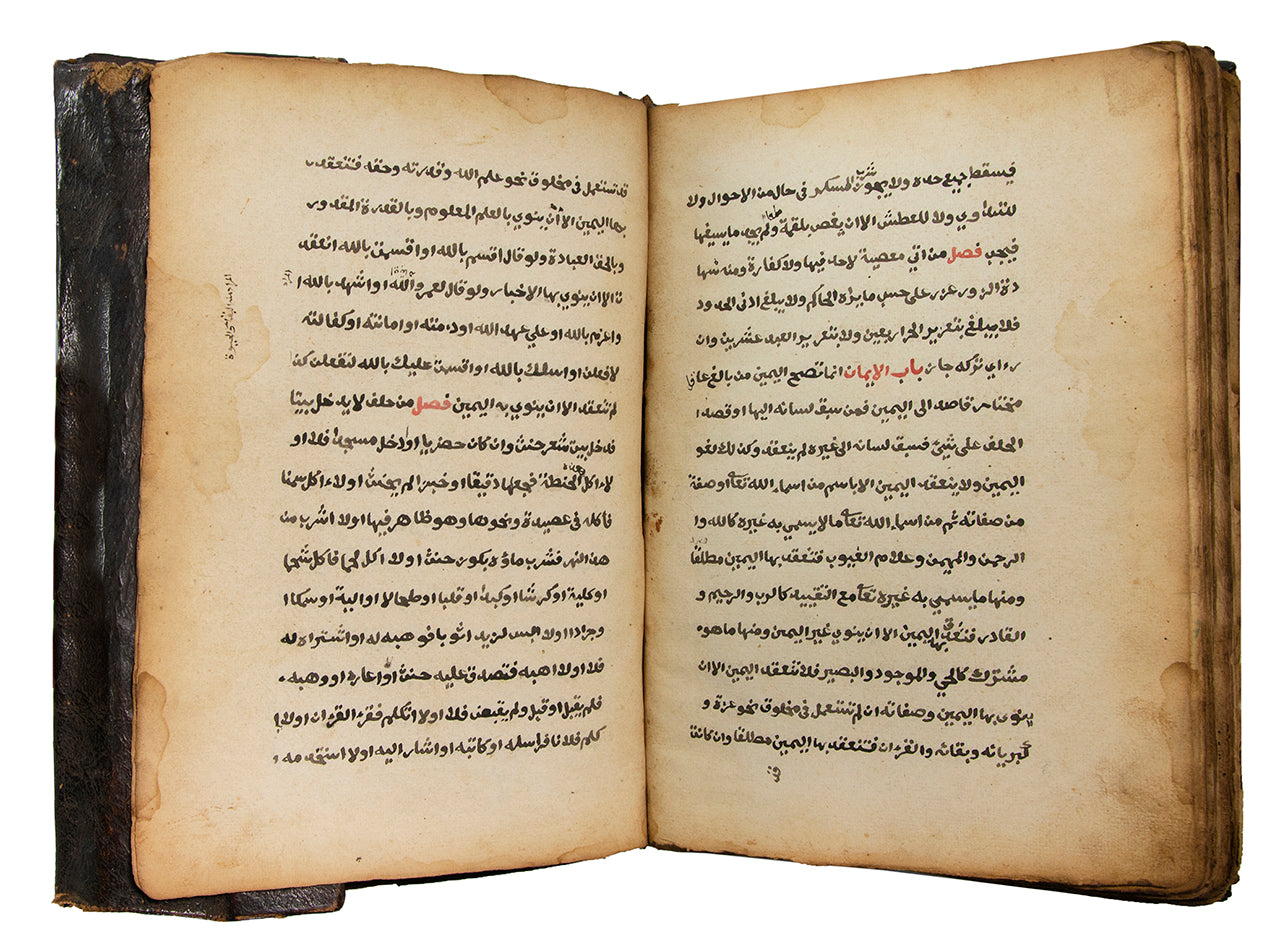 فيسقط جميع حده ولا يجوز شرب المسكر في حال من الاحوال ولا
للتداوي ولا للعطش الا ان يغص بلقمة طعام ولم يجد ما يسيغها
فيجب فصل من اتي معصية لا حد فيها ولا كفارة ومنه شها
دة الزور عزر على حسب ما يراه الحاكم ولا يبلغ ادنى الحدود
فلا يبلغ بتعزير الحر اربعين ولا بتعزير العبد عشرين وان
راي تركه جاز باب الايمان انما تصح اليمين من بالغ عاقل
مختار قاصد الى اليمين فمن سبق لسانه اليها او قصد ا
الحلف على شيئ فسبق لسانه الى غيره لم ينعقد وذلك لغو
اليمين ولا ينعقد اليمين الا باسم من اسماء الله تعالى او صفة
من صفاته ثم من اسماء الله تعالى ما لا يسمي به غيره كالله وا
الرحمن والمهيمن وعلام الغيوب فتنعقد بها اليمين مطلقا
ومنها ما يسمي به غيره تعالى مع التقييد كالرب والرحيم و
القادر فتنعقد بها اليمين الا ان ينوي غير اليمين ومنها ما هو
مشترك كالحي والموجود والبصير فلا تنعقد اليمين الا ان
ينوى بها اليمين وصفاته ان لم تستعمل في مخلوق نحو عزة و
كبريائه وبقائه والقران فتنعقد بها اليمين مطلقا وان كانت
قد
قد تستعمل في مخلوق نحو علم الله وقدرته وحقه فتنعقد
بها اليمين الا أن ينوي بالعلم المعلوم وبالقدرة المقدور
وبالحق العبادة ولو قال اقسم بالله او اقسمت بالله انعقد
ت الا ان ينوي بها الاخبار ولو قال لعمر والله او اشهد بالله ا
واعزم بالله او علي عهد الله او ذمته او امانته او كفالته
لا فعلن او اسلك بالله او اقسمت عليك بالله لتفعلن كذا
لم تنعقد الا ان ينوي به اليمين فصل من حلف لا يدخل بيتا
فدخل بيت شعر حنث وان كان حضريا او دخل مسجدا فلا او
لا اكل الحنطة فجعلها دقيقا او خبزا لم يحنث او لا اكل سمنا
فاكله في عصيدة ونحوها وهو ظاهر فيها او لا اشرب من
هذا النهر فشرب ماؤه بكوز حنث او لا اكل لحما فاكل شحما
او كلية او كرشا او كبدا او قلبا او طحالا او الية او سمكا ا
وجرادا او لا البس لزيد اثوبا فوهبه له او اشتراه له
فلا او لا اهبه فتصدق عليه حنث او اعاره او وهبه
فلم يقبل او قبل ولم يقبض فلا او لا اتكلم فقرء القرءان او لا ا
كلم فلانا فراسله او كاتبه او اشار اليه او لا استخدمه ا